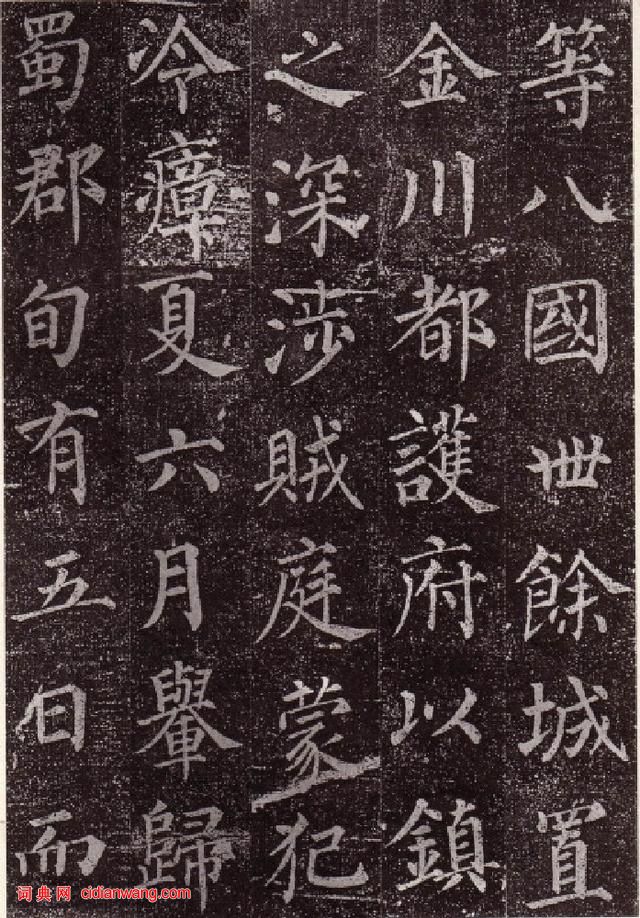 等八國卌餘城置
金川都護府以鎮
之深涉賊庭蒙犯
冷瘴夏六月轝歸
蜀郡旬有五日而
词典网 cidianwang.com